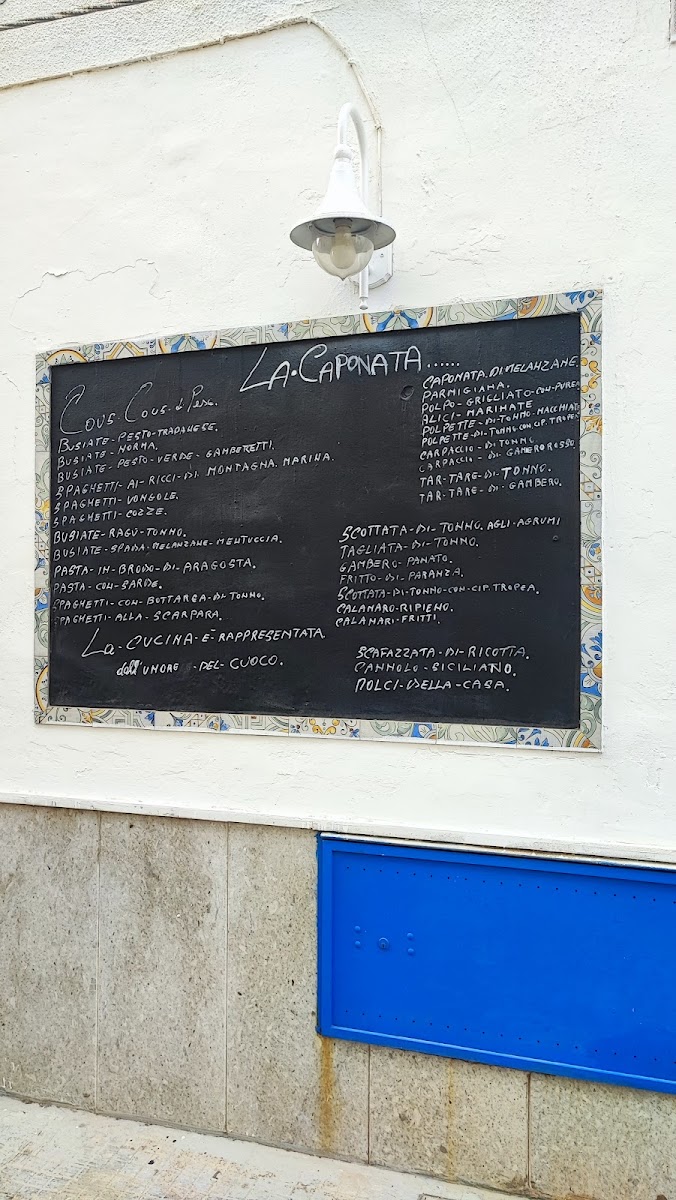 LA·CAPONATA......
COUS·COUS·di Pesc.
BUSIATE-PESTO-TRAPANESE.
BUSIATE-NORMA.
BUSIATE-PESTO-VERDE-GAMBERETTI.
SPAGHETTI-AI-RICCI-DI-MONTAGNA.MARINA.
SPAGHETTI-VONGOLE.
SPAGHETTI-COZZE.
BUSIATE-RAGÙ-TONNO.
BUSIATE-SPADA-MELANZANE-MENTUCCIA.
PASTA-IN-BRODO-DI-ARAGOSTA.
PASTA-CON-SARDE.
SPAGHETTI-CON-BOTTARGA-DI-TONNO.
SPAGHETTI-ALLA-SCARPARA.
LA-CUCINA-E'-RAPPRESENTATA
dall'UMORE-DEL-CUOCO.
CAPONATA.DI.MELANZANE.
PARMIGIANA.
POLPO-GRIGLIATO-CON-PUREA
ALICI-MARINATE
POLPETTE-DI-TONNO.MACCHIATO
POLPETTE-DI-TONNO CON.CIP.TROPEA
CARPACCIO-DI TONNO.
CARPACCIO-DI-GAMBEROROSSO
TAR-TARE-DI-TONNO.
TAR-TARE-DI-GAMBERO.
SCOTTATA-DI-TONNO.AGLI-AGRUMI
TAGLIATA-DI-TONNO.
GAMBERO-PANATO.
FRITTO-DI-PARANZA.
SCOTTATA-DI-TONNO-CON-CIP.TROPEA.
CALAMARO-RIPIENO.
CALAMARI-FRITTI.
SCAFAZZATA-DI-RICOTTA.
CANNOLO-SICILIANO.
DOLCI-DELLA-CASA.